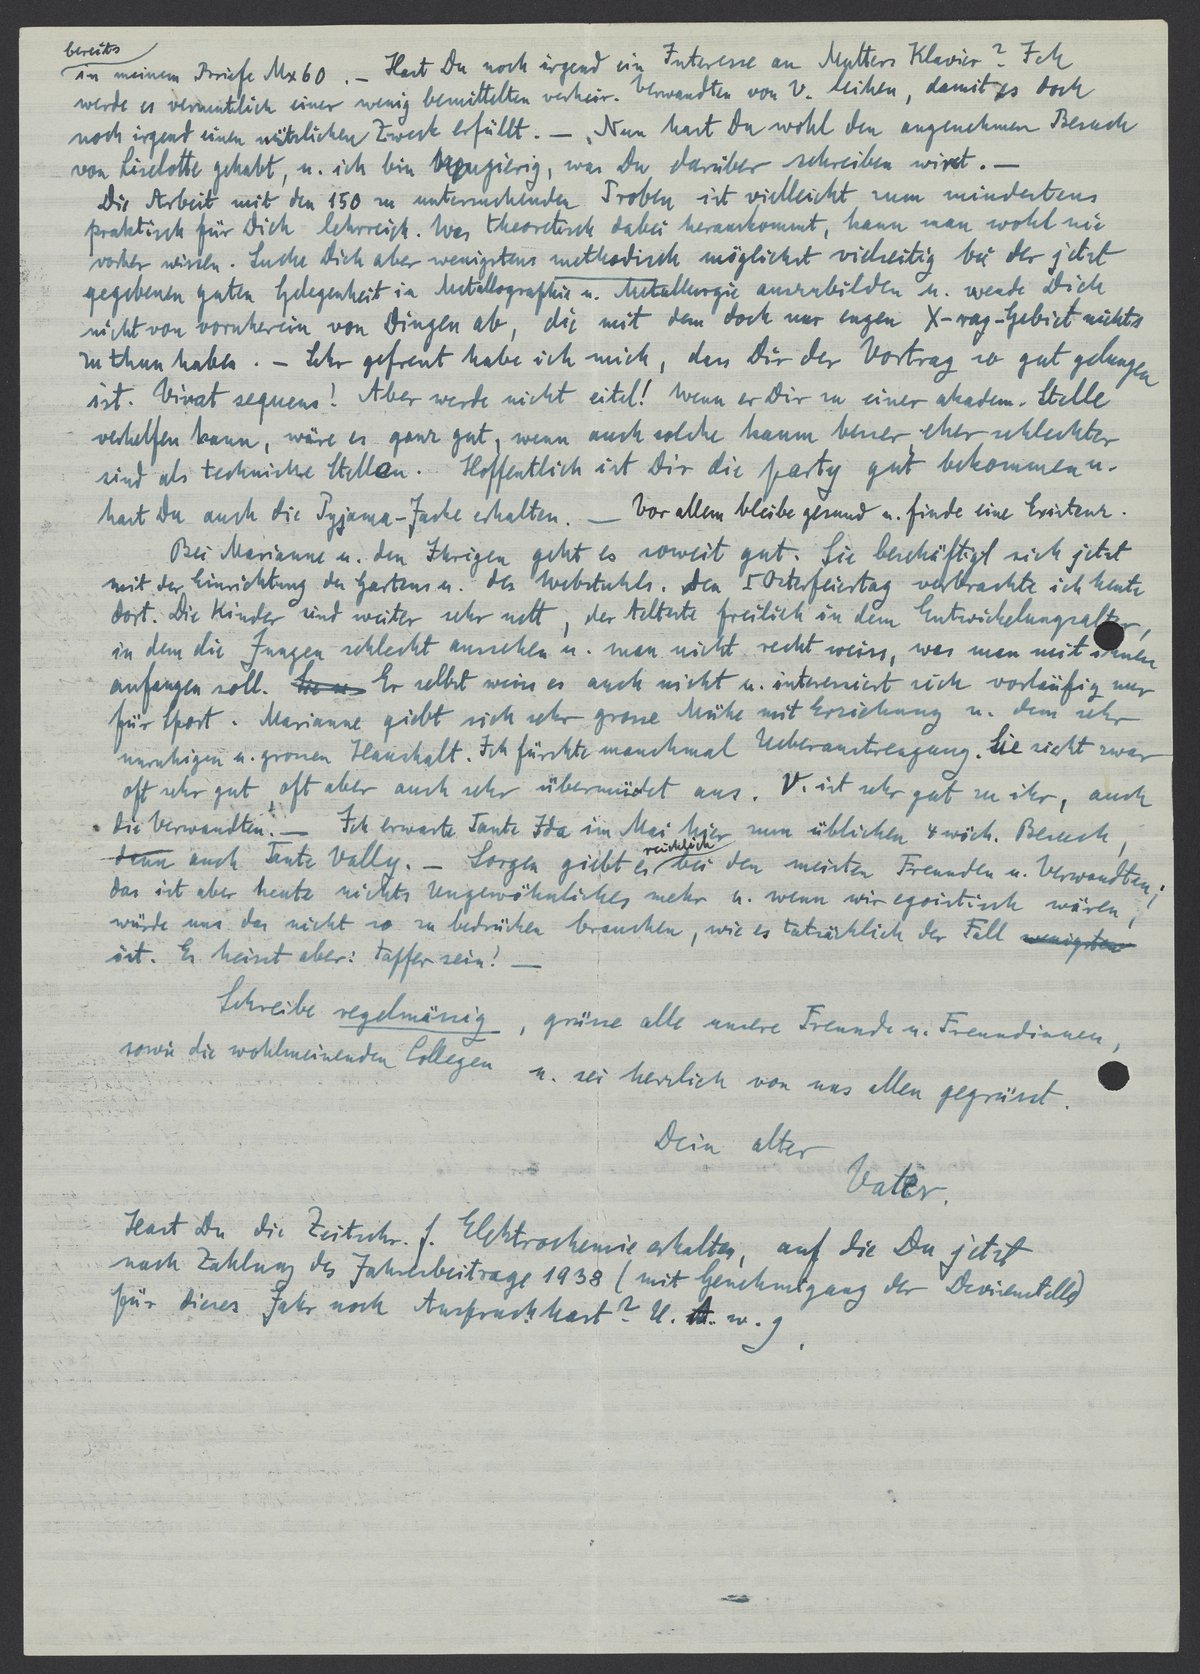 bereits
in meinem Briefe Mx 60. — Hast Du noch irgend ein Interesse an Mutters Klavier? Ich
werde es vermutlich einer wenig bemittelten verheir. Verwandten von V. leihen, damit es doch
noch irgend einen nützlichen Zweck erfüllt. — Nun hast Du wohl den angenehmen Besuch
von Liselotte gehabt, u. ich bin neugierig, was Du darüber schreiben wirst. —
Die Arbeit mit den 150 zu untersuchenden Proben ist vielleicht zum mindestens
praktisch für Dich lehrreich. Was theoretisch dabei herauskommt, kann man wohl nie
vorher wissen. Suche Dich aber wenigstens methodisch möglichst vielseitig bei der jetzt
gegebenen guten Gelegenheit in Metallographie u. Metallurgie auszubilden u. wende Dich
nicht von vornherein von Dingen ab, die mit dem doch nur engen X-ray-Gebiet nichts
zu thun haben. — Sehr gefreut habe ich mich, dass Dir der Vortrag so gut gelungen
ist. Vivat sequens! Aber werde nicht eitel! Wenn er Dir zu einer akadem. Stelle
verhelfen kann, wäre es ganz gut, wenn auch solche kaum besser eher schlechter
sind als technische Stellen. Hoffentlich ist Dir die party gut bekommen u.
hast Du auch die Pyjama-Jacke erhalten. — Vor allem bleibe gesund u. finde eine Existenz.
Bei Marianne u. den Ihrigen geht es soweit gut. Sie beschäftigt sich jetzt
mit der Einrichtung des Gartens u. des Webstuhls. Den I Osterfeiertag verbrachte ich heute
dort. Die Kinder sind weiter sehr nett, der Aelteste freilich in dem Entwickelungsalter,
in dem die Jungen schlecht aussehen u. man nicht recht weiss, was man mit ihnen
anfangen soll. Er selbst weiss es auch nicht u. interessiert sich vorläufig nur
für Sport. Marianne giebt sich sehr grosse Mühe mit Erziehung u. dem sehr
unruhigen u. grossen Haushalt. Ich fürchte manchmal Ueberanstrengung. Sie sieht zwar
oft sehr gut, oft aber auch sehr übermüdet aus. V. ist sehr gut zu ihr, auch
die Verwandten. — Ich erwarte Tante Ida im Mai hier zum üblichen 4 wöch. Besuch,
dann auch Tante Vally. — Sorgen giebt es reichlich bei den meisten Freunden u. Verwandten;
das ist aber heute nichts Ungewöhnliches mehr u. wenn wir egoistisch wären,
würde uns das nicht so zu bedrücken brauchen, wie es tatsächlich der Fall wenigsten
ist. Es heisst aber: Tapfer sein! —
Schreibe regelmässig, grüsse alle unsere Freunde u. Freundinnen,
sowie die wohlmeinenden Collegen u. sei herzlich von uns allen gegrüsst.
Dein alter
Vater.
Hast Du die Zeitschr. f. Elektrochemie erhalten, auf die Du jetzt
nach Zahlung des Jahresbeitrage 1938 (mit Genehmigung der Devisenstelle)
für dieses Jahr noch Anspruch hast? U. A. w. g.